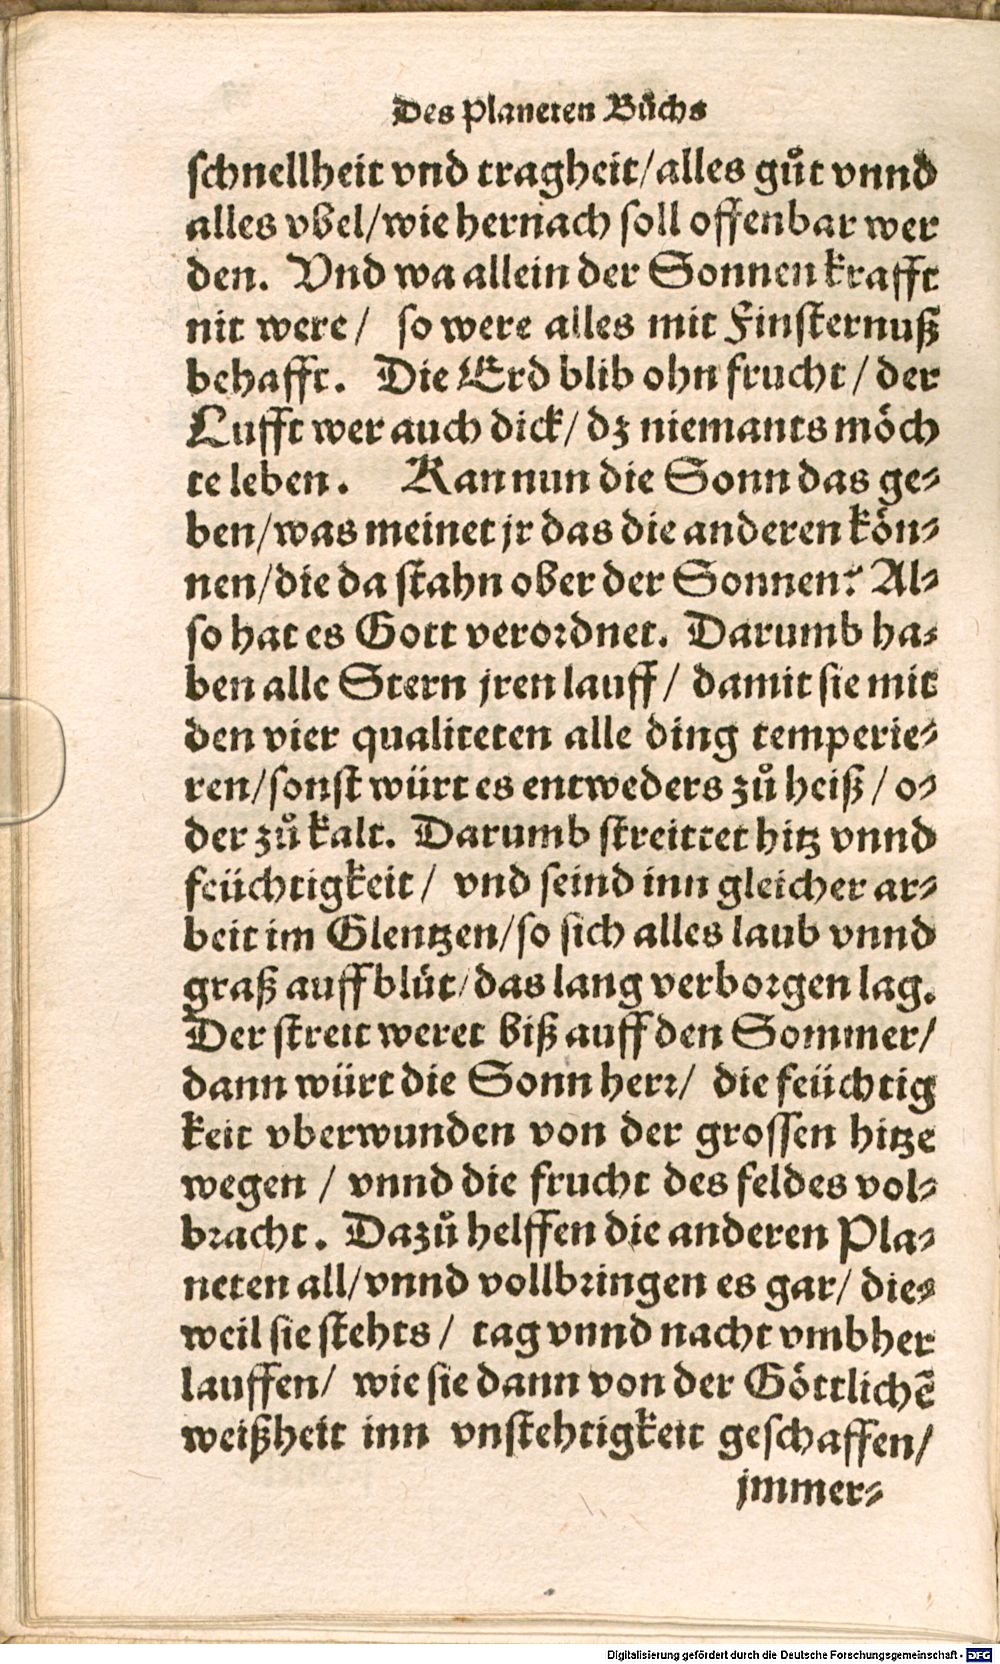 Des Planeten Bůchs
schnellheit vnd tragheit/alles gůt vnnd
alles vbel/wie hernach soll offenbar wer
den. Vnd wa allein der Sonnen krafft
nit were/ so were alles mit Finsternuß
behafft. Die Erd blib ohn frucht/der
Lufft wer auch dick/dz niemants möch
te leben. Kan nun die Sonn das ge⸗
ben/was meinet jr das die anderen kön⸗
nen/die da stahn ober der Sonnen? Al⸗
so hat es Gott verordnet. Darumb ha⸗
ben alle Stern jren lauff/ damit sie mit
den vier qualiteten alle ding temperie⸗
ren/sonst würt es entweders zů heiß/o⸗
der zů kalt. Darumb streittet hitz vnnd
feüchtigkeit/ vnd seind inn gleicher ar⸗
beit im Glentzen/so sich alles laub vnnd
graß auffblüt/das lang verborgen lag.
Der streit weret biß auff den Sommer/
dann würt die Sonn herr/ die feüchtig
keit vberwunden von der grossen hitze
wegen / vnnd die frucht des feldes vol⸗
bracht. Dazů helffen die anderen Pla⸗
neten all/vnnd vollbringen es gar/ die⸗
weil sie stehts / tag vnnd nacht vmbher
lauffen/ wie sie dann von der Göttlichē
weißheit inn vnstehtigkeit geschaffen/
jmmer⸗
Digitalisierung gefördert durch die Deutsche Forschungsgemeinschaft - DFG